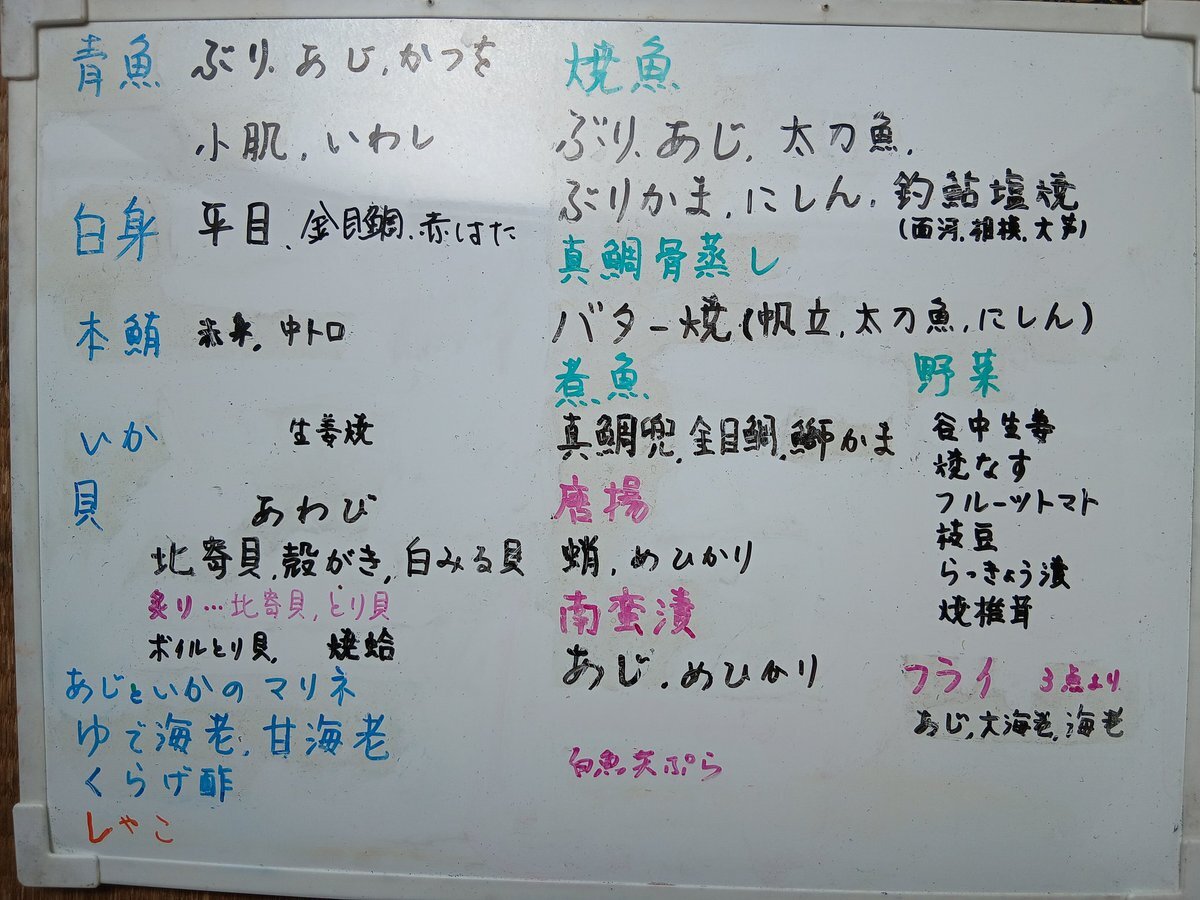 青魚 ぶり、あじ、かつを
小肌、いわし
白身 平目、金目鯛、赤はた
本鮪 赤身、中トロ
いか 生姜焼
貝 あわび
北寄貝、殻がき、白みる貝
炙り…北寄貝、とり貝
ボイルとり貝、 焼蛤
あじといかのマリネ
ゆで海老、甘海老
くらげ酢
しゃこ
焼魚
ぶり、あじ、太刀魚、
ぶりかま、にしん、釣鮎塩焼
(面河、相模、大芦)
真鯛骨蒸し
バター焼(帆立、太刀魚、にしん)
煮魚
真鯛兜、金目鯛、鰤かま
唐揚
蛸、めひかり
南蛮漬
あじ、めひかり
白魚天ぷら
野菜
谷中生姜
焼なす
フルーツトマト
枝豆
らっきょう漬
焼椎茸
フライ 3点より
あじ、大海老、海老